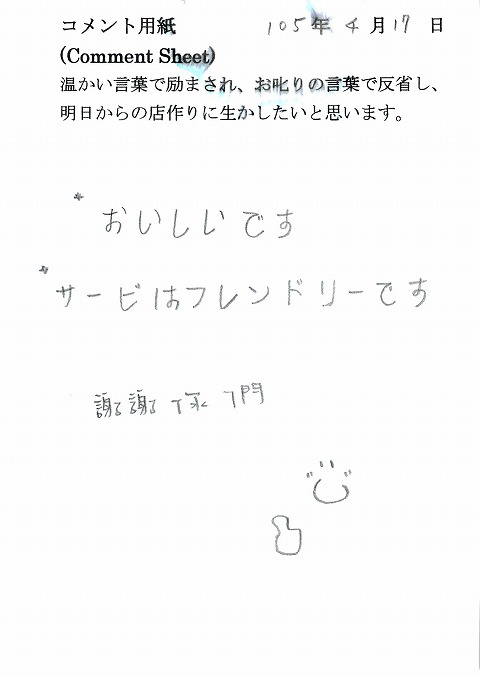 コメント用紙 105年4月17日
(Comment Sheet)
温かい言葉で励まされ、お叱りの言葉で反省し、
明日からの店作りに生かしたいと思います。
* おいしいです
* サービはフレンドリーです
謝謝你們